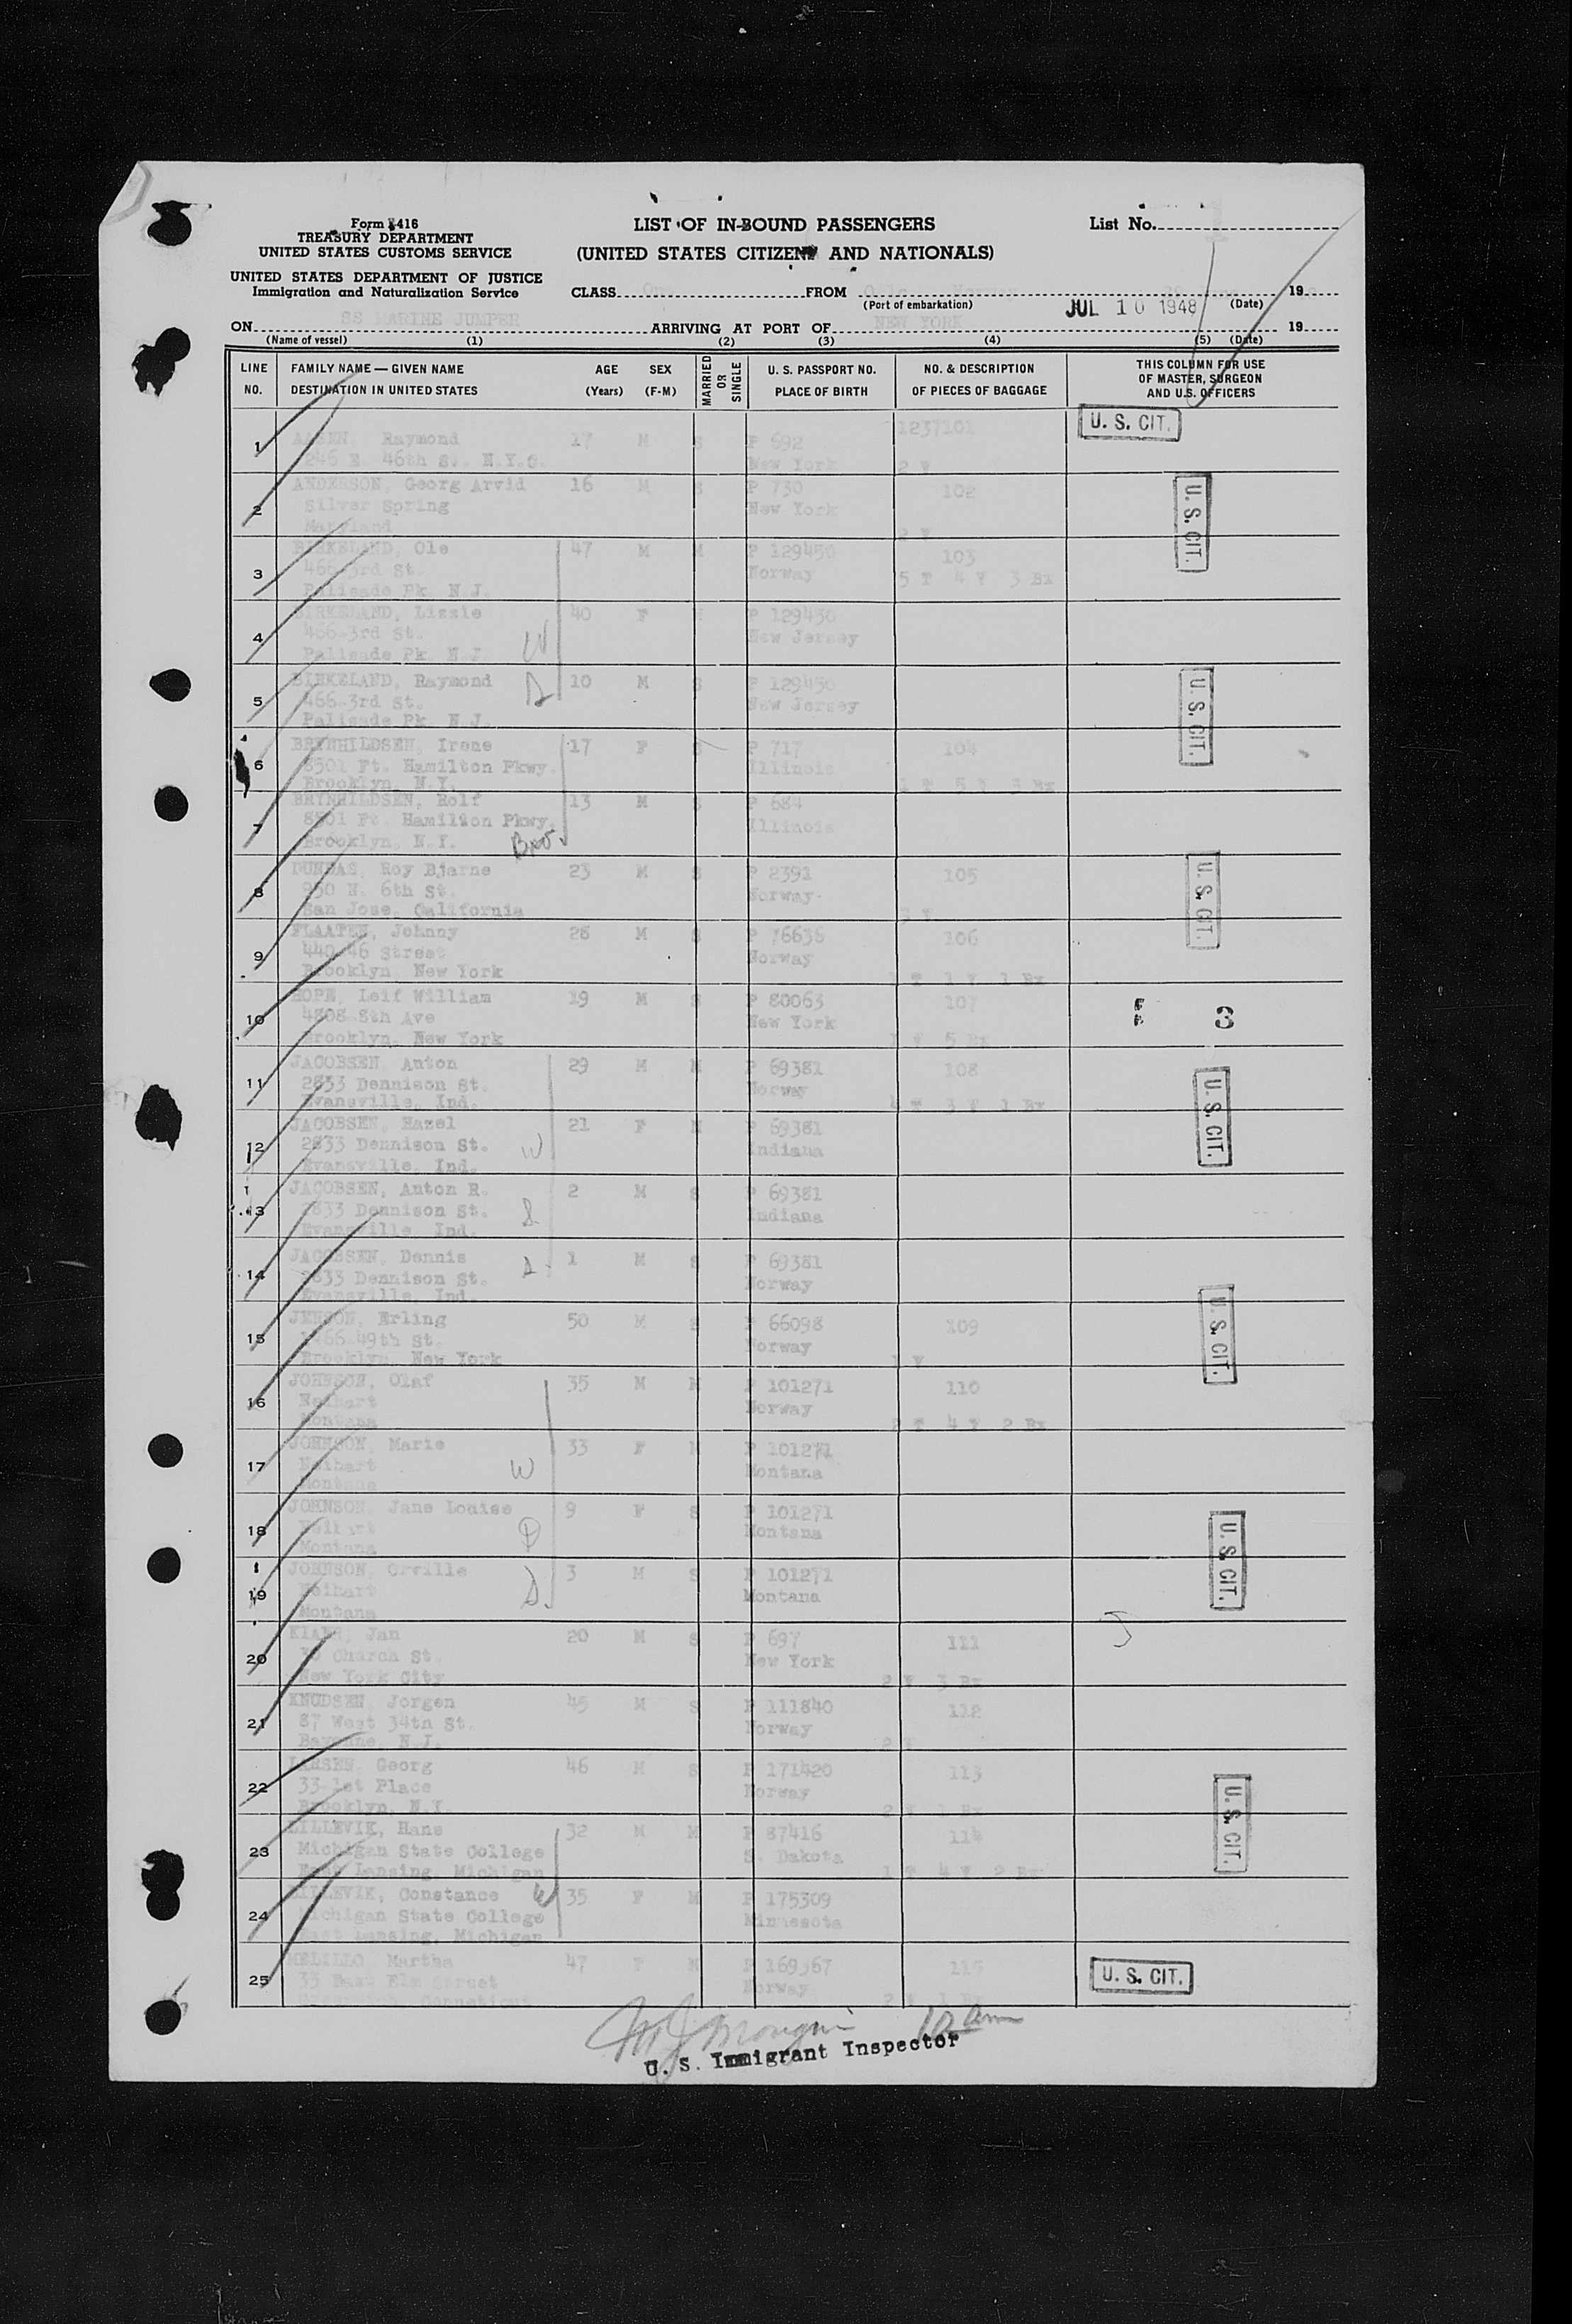 Form 3416
TREASURY DEPARTMENT
UNITED STATES CUSTOMS SERVICE
UNITED STATES DEPARTMENT OF JUSTICE
Immigration and Naturalization Service
LIST OF IN-BOUND PASSENGERS
(UNITED STATES CITIZENS AND NATIONALS)
List No.
CLASS One FROM Oslo Norway 19
(Port of embarkation) (Date)
JUL 10 1948
ON SS MARINE JUMPER ARRIVING AT PORT OF NEW YORK 19
(Name of vessel) (1) (2) (3) (4) (5) (Date)
LINE NO.
FAMILY NAME — GIVEN NAME
DESTINATION IN UNITED STATES
AGE (Years)
SEX (F-M)
MARRIED OR SINGLE
U. S. PASSPORT NO.
PLACE OF BIRTH
NO. & DESCRIPTION
OF PIECES OF BAGGAGE
THIS COLUMN FOR USE
OF MASTER, SURGEON
AND U.S. OFFICERS
1 AASEN, Raymond 17 M S P 692 1237101 U. S. CIT.
246 E. 46th S.. N.Y.C. New York 2 V
2 ANDERSON, Georg Arvid 16 M S P 730 102 U. S. CIT.
Silver Spring New York
Maryland 2 V
3 BIRKELAND, Ole 47 M M P 129450 103
466-3rd St. Norway 5 T 4 V 3 Bx
Palisade Pk N.J.
4 BIRKELAND, Lizzie 40 F M P 129450
466-3rd St. New Jersey
Palisade Pk N.J W
5 BIRKELAND, Raymond 10 M S P 129450 U. S. CIT.
466-3rd St. New Jersey
Palisade Pk N.J.
6 BRYNHILDSEN, Irene 17 F S P 717 104
8501 Ft. Hamilton Pkwy. Illinois
Brooklyn, N.Y. 1 T 5 V 3 Bx
7 BRYNHILDSEN, Rolf 13 M S P 684
8501 Ft. Hamilton Pkwy. Illinois
Brooklyn, N.Y. Bro.
8 Roy Bjarne 23 M S P 2391 105 U. S. CIT.
950 N. 6th St. Norway
San Jose, California 3 V
9 FLAATEN, Johnny 28 M S P 76636 106
440-46 Street Norway
Brooklyn New York 1 T 1 V 1 Bx
10 HOPE, Leif William 19 M S P 80063 107
4808 8th Ave New York
Brooklyn, New York 1 V 5 Bx
11 JACOBSEN, Anton 29 M M P 69381 108 U. S. CIT.
2833 Dennison St. Norway
Evansville, Ind. 4 T 3 V 1 Bx
12 JACOBSEN, Hazel 21 F M P 69381
2833 Dennison St. W Indiana
Evansville, Ind.
13 JACOBSEN, Anton R. 2 M S P 69381
2833 Dennison St. Indiana
Evansville, Ind.
14 JACOBSEN, Dennis 1 M S P 69381
2833 Dennison St. Norway
Evansville, Ind.
15 JENSON, Erling 50 M S P 66098 109 U. S. CIT.
1466-49th St. Norway
Brooklyn, New York 1 V
16 JOHNSON, Olaf 35 M M P 101271 110
Neihart Norway
Montana 2 T 4 V 2 Bx
17 JOHNSON, Marie 33 F M P 101271
Neihart W Montana
Montana
18 JOHNSON, Jane Louise 9 F S P 101271 U. S. CIT.
Neihart D Montana
Montana
19 JOHNSON, Orville 3 M S P 101271
Neihart Montana
Montana
20 Jan 20 M S P 697 111
Church St. New York
New York City 2 V 3 Bx
21 KNUDSEN, Jorgen 45 M S P 111840 112
87 West 34th St. Norway
Bayonne, N.J. 2 V
22 LARSEN, Georg 46 M S P 171420 113 U. S. CIT.
33-1st Place Norway
Brooklyn, N.Y. 2 V 1 Bx
23 LILLEVIK, Hans 32 M M P 87416 114
Michigan State College S. Dakota
East Lansing, Michigan 1 T 4 V 2 Bx
24 LILLEVIK, Constance W 35 F M P 175309
Michigan State College Minnesota
East Lansing, Michigan
25 MELILLO, Martha 47 F M P 169367 115 U. S. CIT.
35 East Norway
Connecticut 2 V 1 Bx
10 am
U. S. Immigrant Inspector